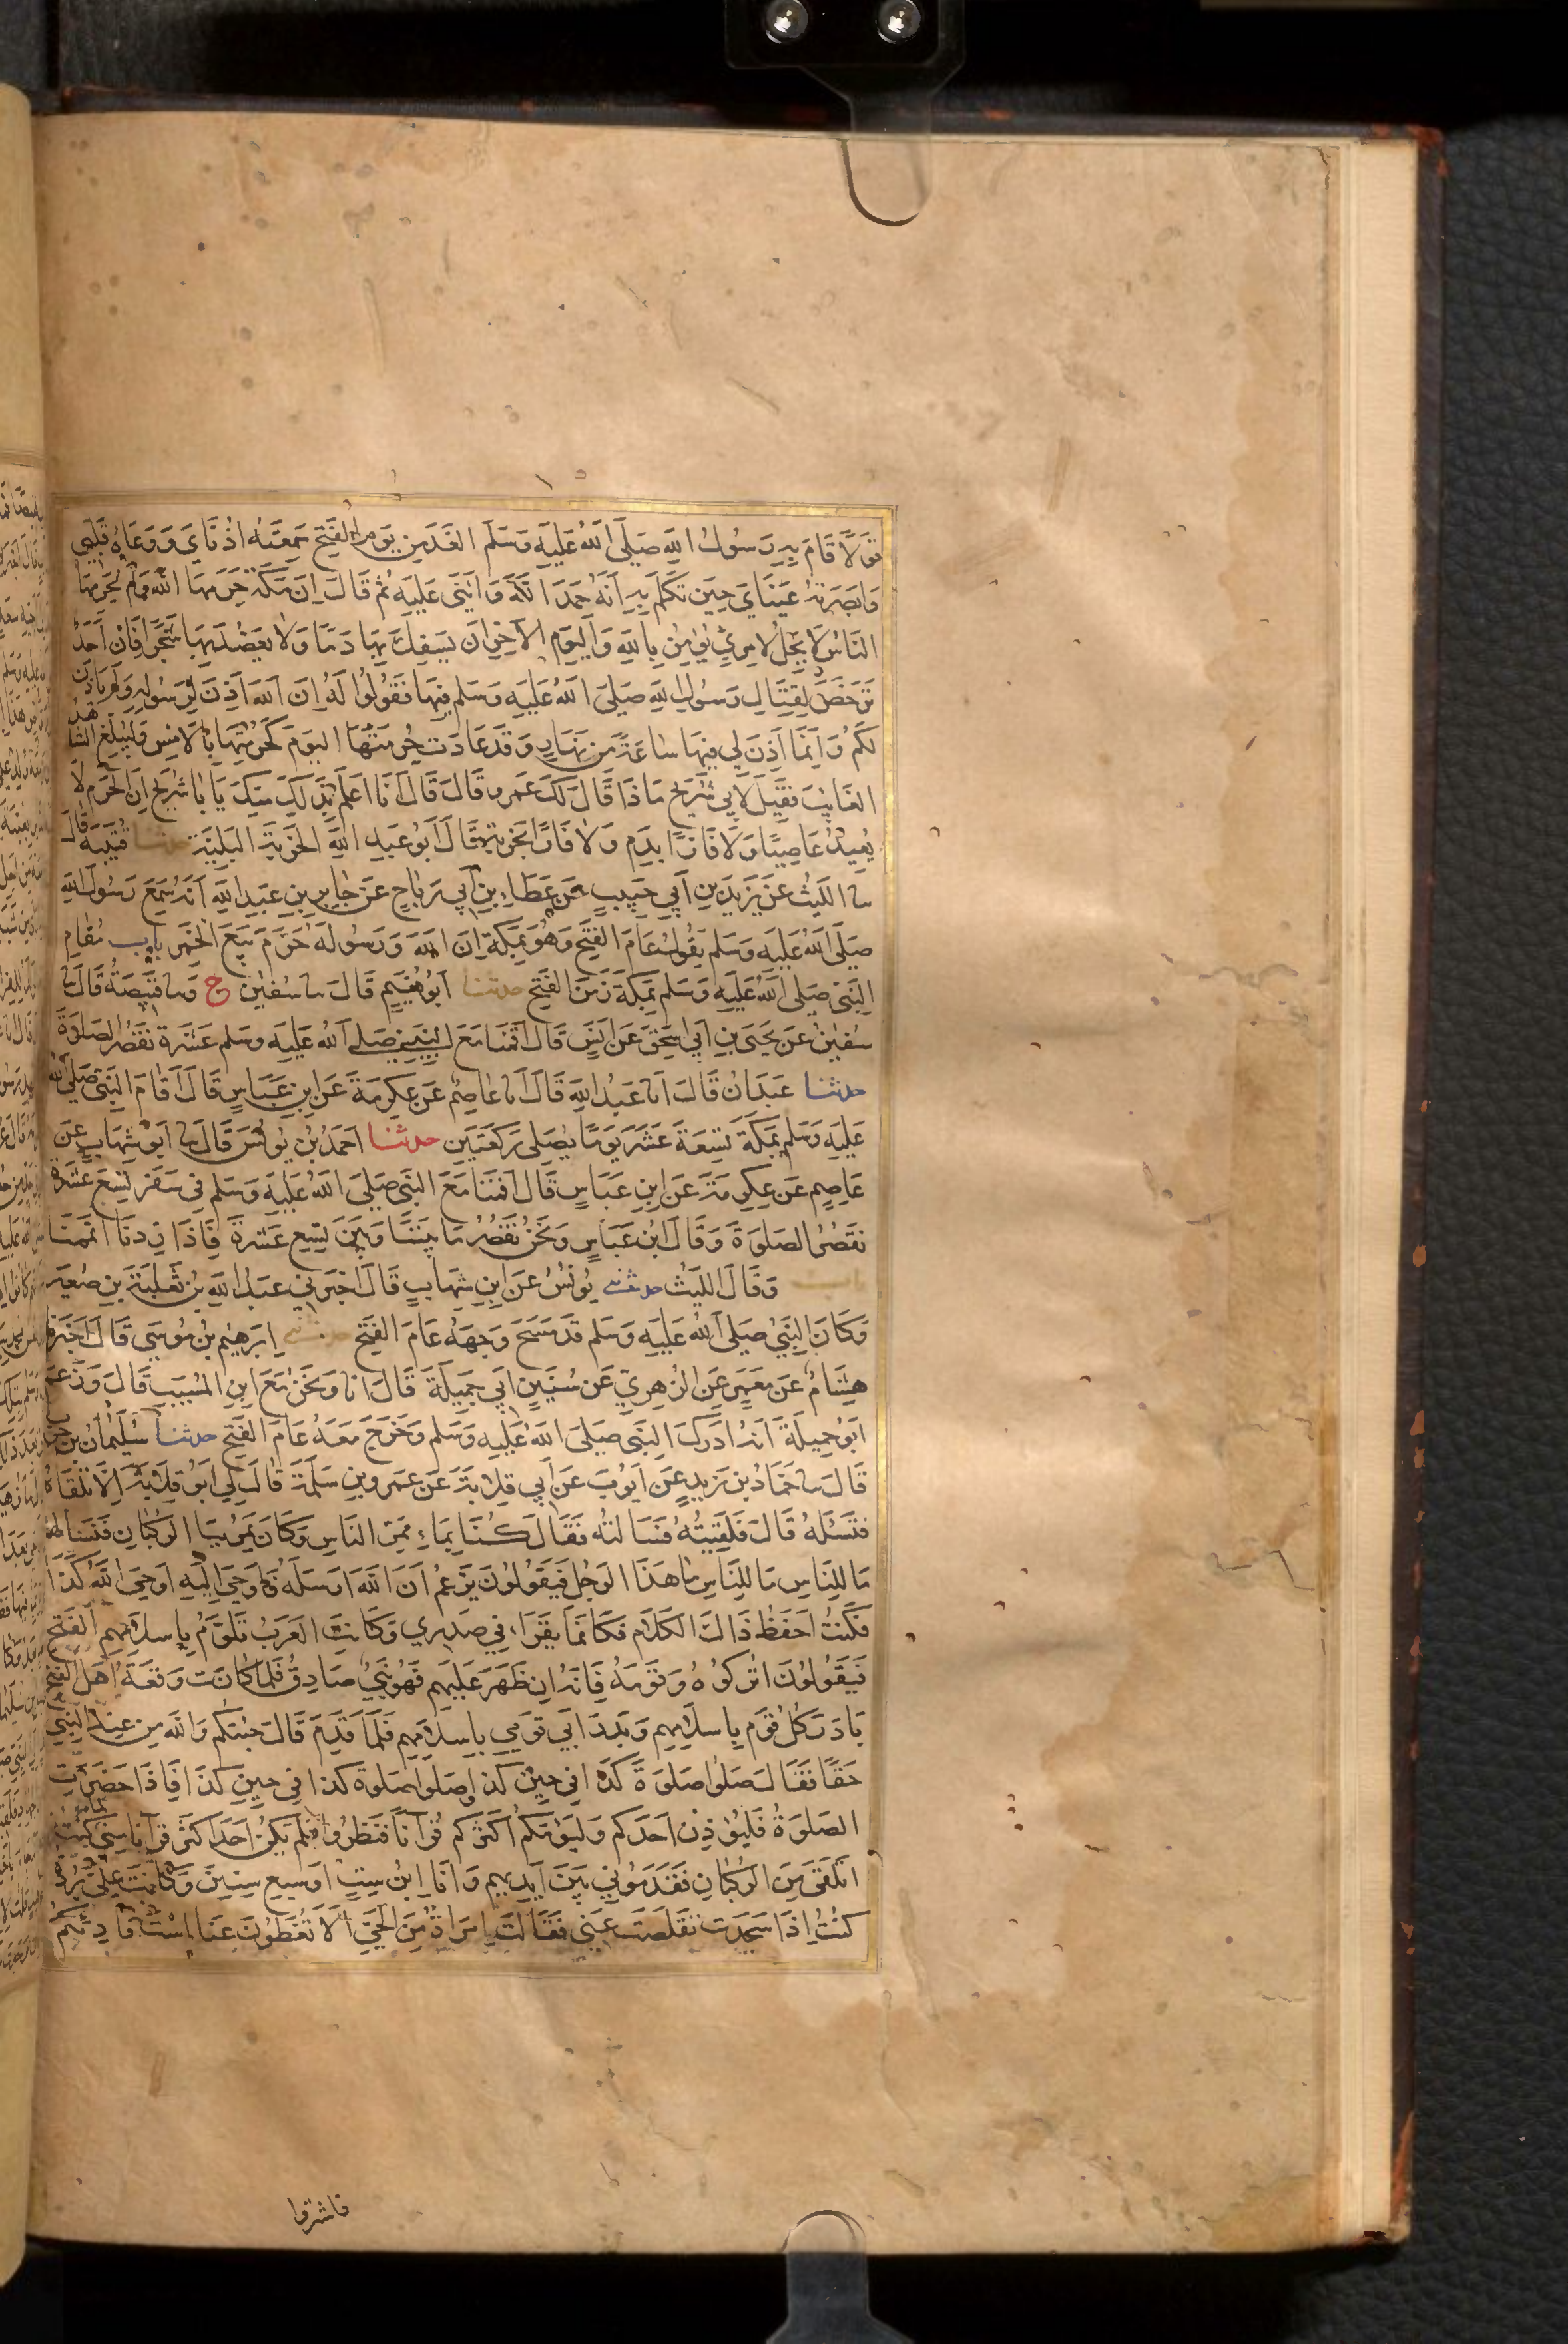 قَوْلًا قَامَ بِهِ رَسُولُ اللهِ صَلَّى اللهُ عَلَيْهِ وَسَلَّمَ الْغَدَ مِن يَوْمِ الْفَتْحِ سَمِعَتْهُ اُذُنَايَ وَوَعَاهُ قَلْبِي
وَاَبْصَرَتْهُ عَيْنَايَ حِينَ تَكَلَّمَ بِهِ اَنَّهُ حَمِدَ اللهَ وَاَثْنَى عَلَيْهِ ثُمَّ قَالَ اِنَّ مَكَّةَ حَرَّمَهَا اللهُ وَلَمْ يُحَرِّمْهَا
النَّاسُ لَا يَحِلُّ لِامْرِئٍ يُؤْمِنُ بِاللهِ وَالْيَوْمِ الْآخِرِ اَن يَسْفِكَ بِهَا دَمًا وَلَا يَعْضُدَ بِهَا شَجَرًا فَاِنْ اَحَدٌ
تَرَخَّصَ لِقِتَالِ رَسُولِ اللهِ صَلَّى اللهُ عَلَيْهِ وَسَلَّمَ فِيهَا فَقُولُوا لَهُ اِنَّ اللهَ اَذِنَ لِرَسُولِهِ وَلَمْ يَأْذَن
لَكُمْ وَاِنَّمَا اَذِنَ لِي فِيهَا سَاعَةً مِن نَهَارٍ وَقَدْ عَادَت حُرْمَتُهَا الْيَوْمَ كَحُرْمَتِهَا بِالْاَمْسِ وَلْيُبَلِّغِ الشَّاهِدُ
الْغَائِبَ فَقِيلَ لِاَبِي شُرَيْحٍ مَاذَا قَالَ لَكَ عَمْرو قَالَ قَالَ اَنَا اَعْلَمُ بِذَلِكَ مِنْكَ يَا بَا شُرَيْحٍ اِنَّ الْحَرَمَ لَا
يُعِيذُ عَاصِيًا وَلَا فَارًّا بِدَمٍ وَلَا فَارًّا بِخَرْبَةٍ قَالَ اَبُو عَبْدِ اللهِ الْخَرْبَةُ الْبَلِيَّةُ حدثنا قُتَيْبَةُ قَالَ
سا اللَّيْثُ عَنْ يَزِيدَ بْنِ اَبِي حَبِيبٍ عَنْ عَطَاءِ بْنِ اَبِي رَبَاحٍ عَنْ جَابِرِ بْنِ عَبْدِ اللهِ اَنَّهُ سَمِعَ رَسُولَ اللهِ
صَلَّى اللهُ عَلَيْهِ وَسَلَّمَ يَقُولُ عَامَ الْفَتْحِ وَهُوَ بِمَكَّةَ اِنَّ اللهَ وَرَسُولَهُ حَرَّمَ بَيْعَ الْخَمْرِ بَاب مُقَامِ
النَّبِيِّ صَلَّى اللهُ عَلَيْهِ وَسَلَّمَ بِمَكَّةَ زَمَنَ الْفَتْحِ حدثنا اَبُو نُعَيْمٍ قَالَ سا سُفْيٰن ح وسا قَبِيصَةُ قَالَ سا
سُفْيٰنُ عَنْ يَحْيَى بْنِ اَبِي اِسْحٰقَ عَنْ اَنَسٍ قَالَ اَقَمْنَا مَعَ النَّبِيِّ صَلَّى اللهُ عَلَيْهِ وَسَلَّمَ عَشَرَةً نَقْصُرُ الصَّلٰوةَ
حدثنا عَبْدَانُ قَالَ انا عَبْدُ اللهِ قَالَ انا عَاصِمٌ عَنْ عِكْرِمَةَ عَنِ ابْنِ عَبَّاسٍ قَالَ اَقَامَ النَّبِيُّ صَلَّى اللهُ
عَلَيْهِ وَسَلَّمَ بِمَكَّةَ تِسْعَةَ عَشَرَ يَوْمًا يُصَلِّي رَكْعَتَيْنِ حدثنا اَحْمَدُ بْنُ يُونُسَ قَالَ سا اَبُو شِهَابٍ عَنْ
عَاصِمٍ عَنْ عِكْرِمَةَ عَنِ ابْنِ عَبَّاسٍ قَالَ اَقَمْنَا مَعَ النَّبِيِّ صَلَّى اللهُ عَلَيْهِ وَسَلَّمَ فِي سَفَرٍ تِسْعَ عَشْرَةَ
نَقْصُرُ الصَّلٰوةَ وَقَالَ ابْنُ عَبَّاسٍ وَنَحْنُ نَقْصُرُ مَا بَيْنَنَا وَبَيْنَ تِسْعِ عَشْرَةَ فَاِذَا زِدْنَا اَتْمَمْنَا
باب وَقَالَ اللَّيْثُ حدثني يُونُسُ عَنِ ابْنِ شِهَابٍ قَالَ اَخْبَرَنِي عَبْدُ اللهِ بْنُ ثَعْلَبَةَ بْنِ صُعَيْرٍ
وَكَانَ النَّبِيُّ صَلَّى اللهُ عَلَيْهِ وَسَلَّمَ قَدْ مَسَحَ وَجْهَهُ عَامَ الْفَتْحِ حدثني اِبْرَهِيمُ بْنُ مُوسَى قَالَ اَخْبَرَنَا
هِشَامٌ عَنْ مَعْمَرٍ عَنِ الزُّهْرِيِّ عَنْ سُنَيْنٍ اَبِي جَمِيلَةَ قَالَ انا وَنَحْنُ مَعَ ابْنِ الْمُسَيَّبِ قَالَ وَزَعَمَ
اَبُو جَمِيلَةَ اَنَّهُ اَدْرَكَ النَّبِيَّ صَلَّى اللهُ عَلَيْهِ وَسَلَّمَ وَخَرَجَ مَعَهُ عَامَ الْفَتْحِ حدثنا سُلَيْمَانُ بْنُ حَرْبٍ
قَالَ سا حَمَّادُ بْنُ زَيْدٍ عَنْ اَيُّوبَ عَنْ اَبِي قِلَابَةَ عَنْ عَمْرِو بْنِ سَلِمَةَ قَالَ لِي اَبُو قِلَابَةَ اَلَا تَلْقَاهُ
فَتَسْئَلَهُ قَالَ فَلَقِيتُهُ فَسَاَلْتُهُ فَقَالَ كُنَّا بِمَاءِ مَمَرِّ النَّاسِ وَكَانَ يَمُرُّ بِنَا الرُّكْبَانُ فَنَسْاَلُهُمْ
مَا لِلنَّاسِ مَا لِلنَّاسِ مَا هَذَا الرَّجُلُ فَيَقُولُونَ يَزْعُمُ اَنَّ اللهَ اَرْسَلَهُ وَاَوْحَى اِلَيْهِ اَوْحَى اللهُ كَذَا
فَكُنْتُ اَحْفَظُ ذَاكَ الْكَلَامَ فَكَاَنَّمَا يُقْرَاُ فِي صَدْرِي وَكَانَتِ الْعَرَبُ تَلَوَّمُ بِاِسْلَامِهِمُ الْفَتْحَ
فَيَقُولُونَ اتْرُكُوهُ وَقَوْمَهُ فَاِنَّهُ اِن ظَهَرَ عَلَيْهِمْ فَهُوَ نَبِيٌّ صَادِقٌ فَلَمَّا كَانَت وَقْعَةُ اَهْلِ الْفَتْحِ
بَادَرَ كُلُّ قَوْمٍ بِاِسْلَامِهِمْ وَبَدَرَ اَبِي قَوْمِي بِاِسْلَامِهِمْ فَلَمَّا قَدِمَ قَالَ جِئْتُكُمْ وَاللهِ مِن عِنْدِ النَّبِيِّ
حَقًّا فَقَالَ صَلُّوا صَلٰوةَ كَذَا فِي حِينِ كَذَا وَصَلُّوا صَلٰوةَ كَذَا فِي حِينِ كَذَا فَاِذَا حَضَرَتِ
الصَّلٰوةُ فَلْيُؤَذِّنْ اَحَدُكُمْ وَلْيَؤُمَّكُمْ اَكْثَرُكُمْ قُرْآنًا فَنَظَرُوا فَلَمْ يَكُنْ اَحَدٌ اَكْثَرَ قُرْآنًا مِنِّي كُنْتُ
اَتَلَقَّى مِنَ الرُّكْبَانِ فَقَدَّمُونِي بَيْنَ اَيْدِيهِمْ وَاَنَا ابْنُ سِتٍّ اَوْ سَبْعِ سِنِينَ وَكَانَتْ عَلَيَّ بُرْدَةٌ
كُنْتُ اِذَا سَجَدْتُ تَقَلَّصَتْ عَنِّي فَقَالَتِ امْرَاَةٌ مِنَ الْحَيِّ اَلَا تُغَطُّونَ عَنَّا اسْتَ قَارِئِكُمْ
فاشتروا